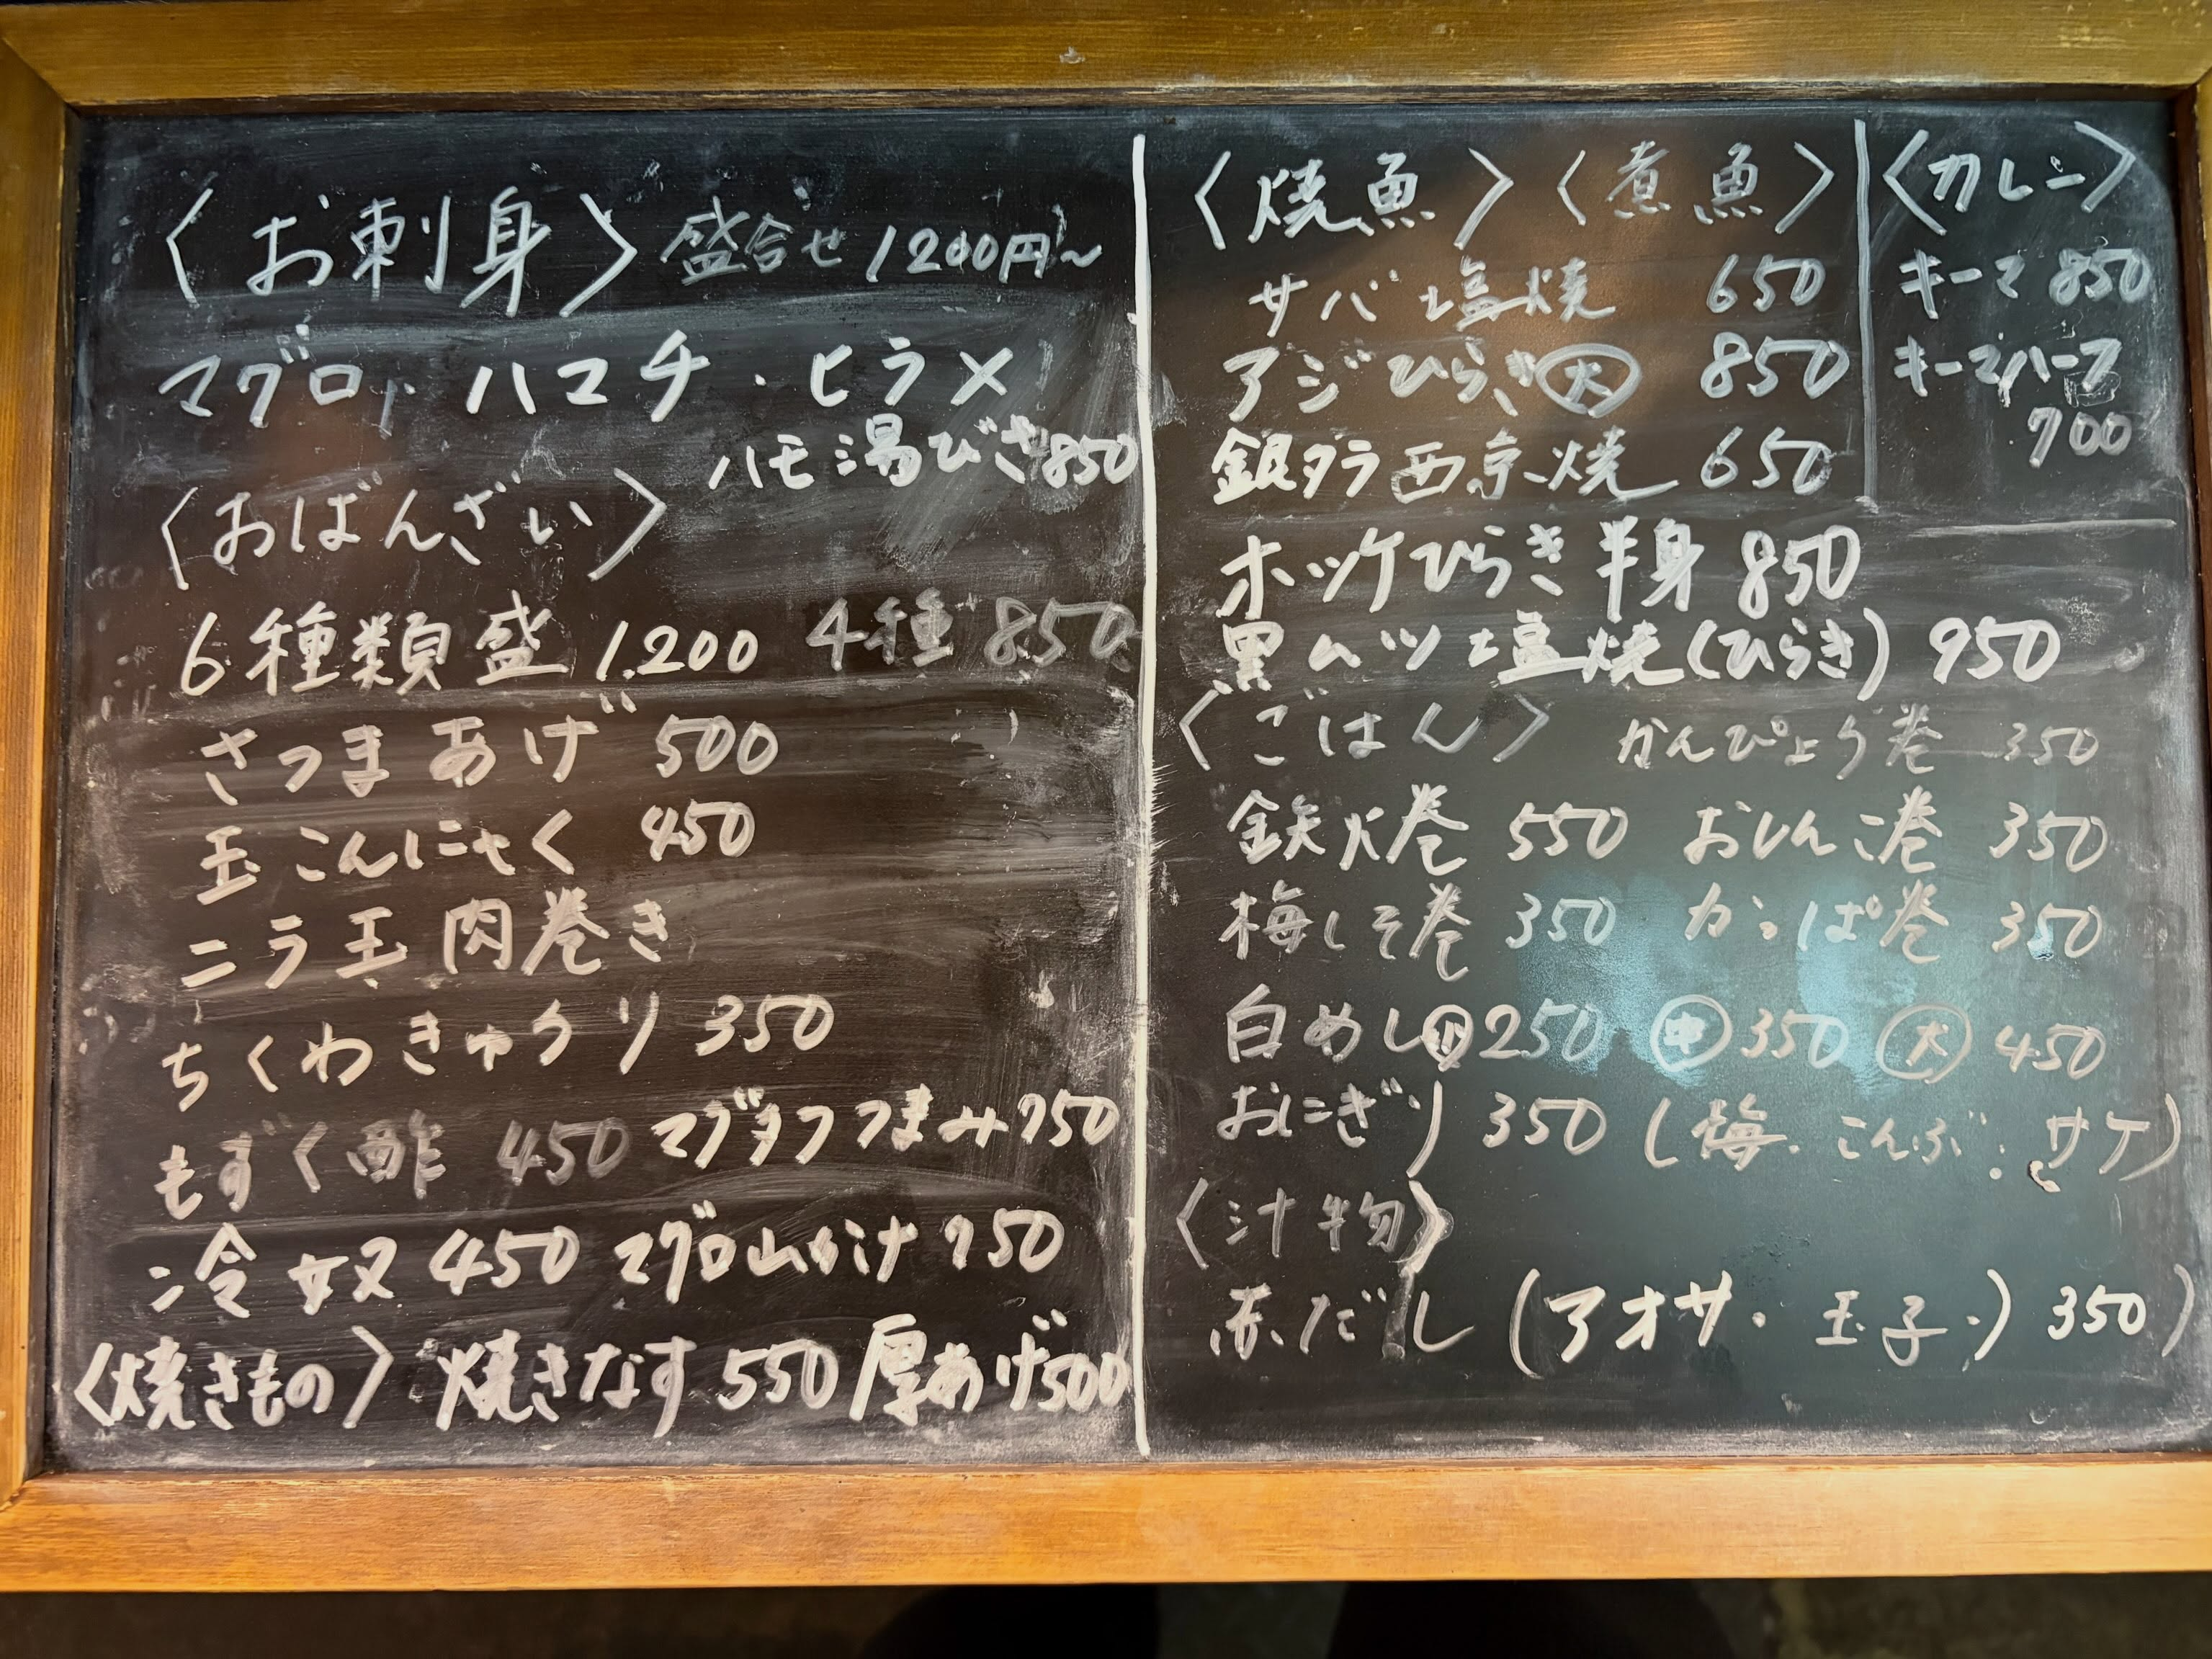 〈お刺身〉盛合せ 1200円〜
マグロ, ハマチ・ヒラメ
ハモ湯びき850
〈おばんざい〉
6種類盛 1.200 4種 850
さつまあげ 500
玉こんにゃく 450
ニラ玉肉巻き
ちくわきゅうり 350
もずく酢 450 マグタクつまみ750
冷奴 450 マグロ山かけ 750
〈焼きもの〉焼きなす 550 厚あげ500
〈焼魚〉〈煮魚〉
サバ塩焼 650
アジひらき大 850
銀タラ西京焼 650
ホッケひらき半身 850
黒ムツ塩焼(ひらき) 950
〈カレー〉
キーマ 850
キーマハーフ
700
〈ごはん〉 かんぴょう巻 350
鉄火巻 550 おしんこ巻 350
梅しそ巻 350 カッぱ巻 350
白めし小250 中350 大450
おにぎり 350 (梅・こんぶ・サケ)
〈汁物〉
赤だし (アオサ・玉子・) 350)